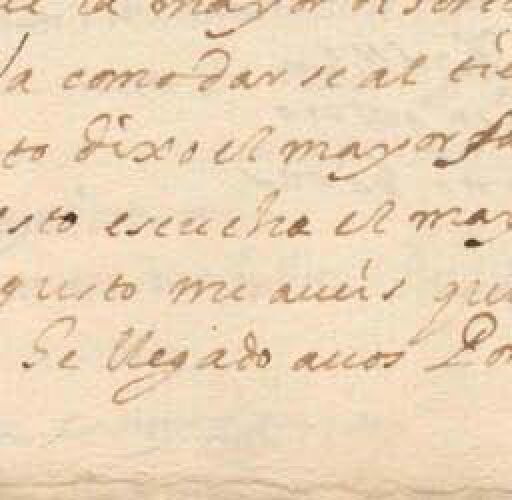 la mayor
a comodarse al tie
to dixo el mayor fa
esto escucha el may
gusto me aueis qui
Se llegado auos Por